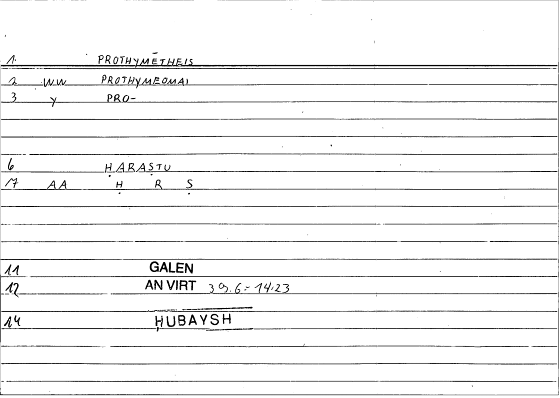 1. PROTHYMĒTHEIS
2 WW PROTHYMEOMAI
3 y PRO-
6 ḤARAṢTU
17 AA Ḥ R Ṣ
11 GALEN
12 AN VIRT 39.6-14.23
14 ḤUBAYSH